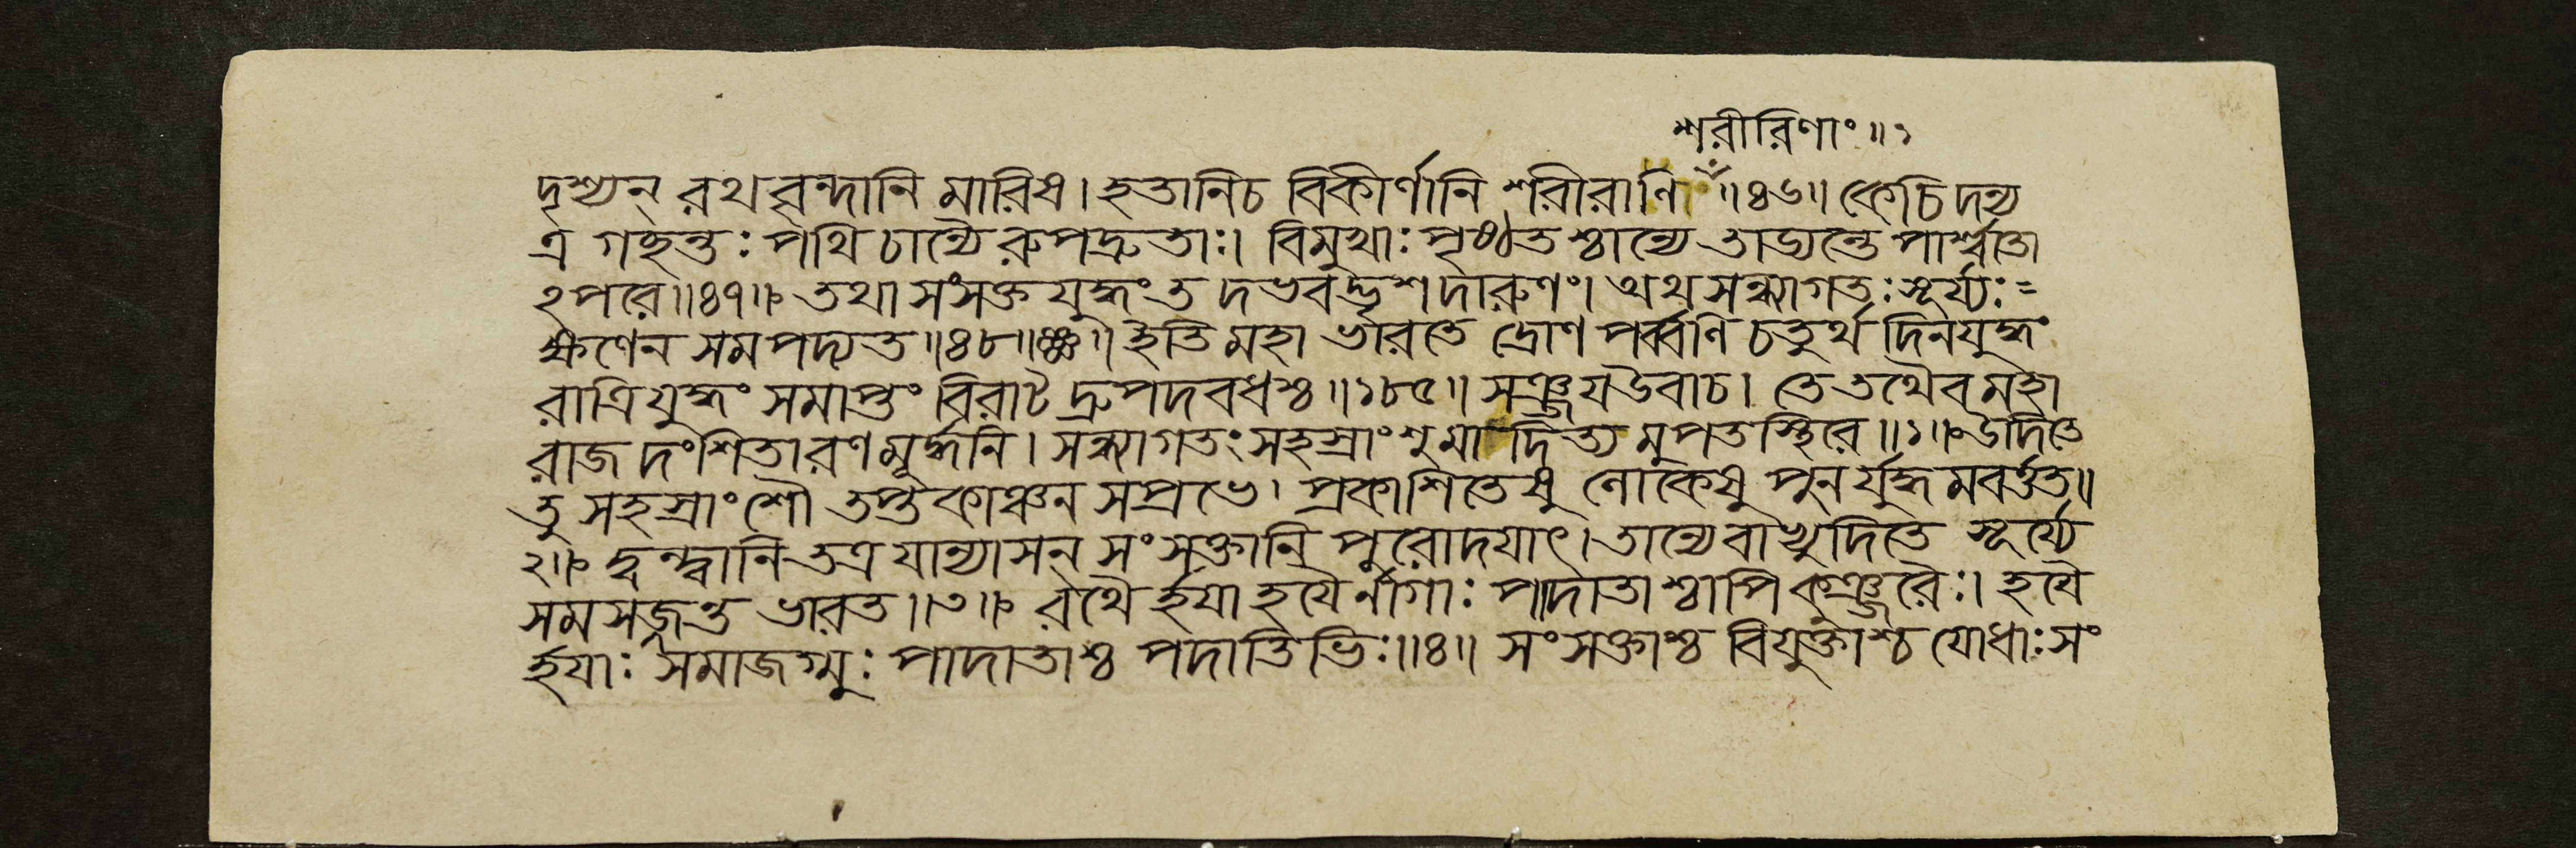 শরীরিণাং॥১
দৃশ্যন্ রথবৃন্দানি মারিষ। হতানিচ বিকীর্ণানি শরীরাণি ॥৪৬॥ কেচিদন্য
ত্র গছন্তঃ পথি চান্যৈরুপদ্রুতাঃ। বিমুখাঃ পৃষ্ঠতশ্চান্যে তাড্যন্তে পার্শ্বতো
ঽপরে॥৪৭॥ তথা সংসক্তযুদ্ধং তদভবদ্ভৃশদারুণং। অথ সন্ধ্যাগতঃ সূর্য্যঃ=
ক্ষণেন সমপদ্যত॥৪৮॥ ইতি মহাভারতে দ্রোণপর্ব্বণি চতুর্থদিনযুদ্ধং
রাত্রিযুদ্ধং সমাপ্তং বিরাটদ্রুপদবধশ্চ॥১৮৫॥ সঞ্জয়উবাচ। তে তথৈব মহা
রাজ দংশিতারণমূর্দ্ধনি। সন্ধ্যাগতং সহস্রাংশুমাদিত্যমুপতস্থিরে॥১॥ উদিতে
তু সহস্রাংশৌ তপ্তকাঞ্চনসপ্রভে। প্রকাশিতেষু লোকেষু পুনর্যুদ্ধমবর্ত্তত॥
২॥ দ্বন্দ্বানি তত্র যান্যাসন্ সংসক্তানি পুরোদয়াৎ। তান্যেবাভ্যুদিতে সূর্য্যে
সমসজ্জন্ত ভারত॥৩॥ রথৈর্হয়া হয়ৈর্নাগাঃ পাদাতাশ্চাপি কুঞ্জরৈঃ। হয়ৈ
র্হয়াঃ সমাজগ্মুঃ পাদাতাশ্চ পদাতিভিঃ॥৪॥ সংসক্তাশ্চ বিযুক্তাশ্চ যোধাঃ সং